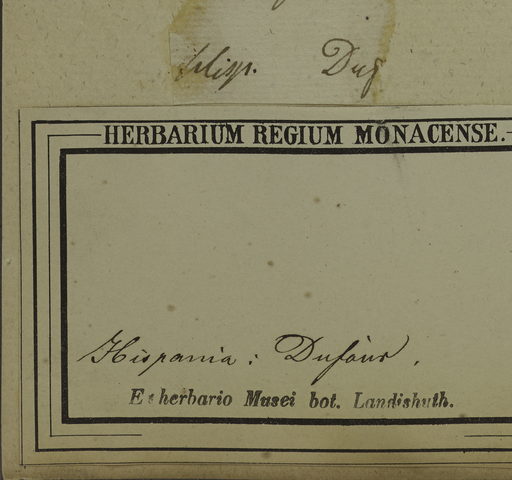 Hisp. Duf
HERBARIUM REGIUM MONACENSE.
Hispania: Dufour.
Ex herbario Musei bot. Landishuth.